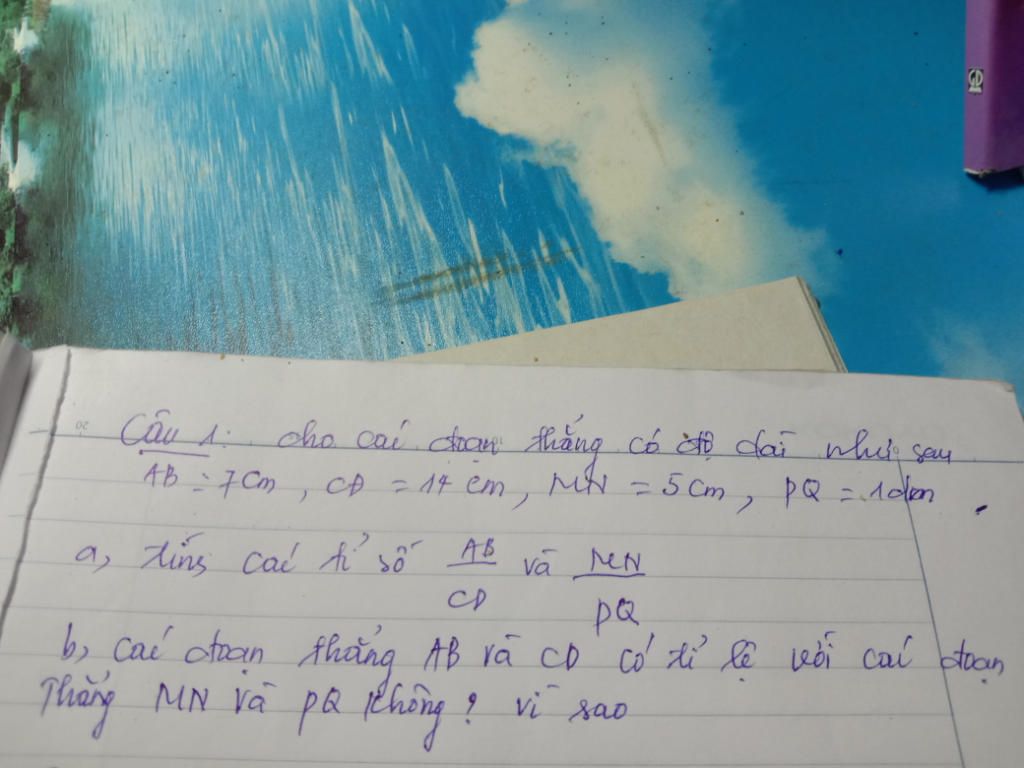 Câu 1: cho các đoạn thẳng có độ dài như sau
AB = 7cm, CD = 14 cm, MN = 5cm, PQ = 1dm.
a, tính các tỉ số AB/CD và MN/PQ
b, Các đoạn thẳng AB và CD có tỉ lệ với các đoạn
Thẳng MN và PQ không? vì sao
20